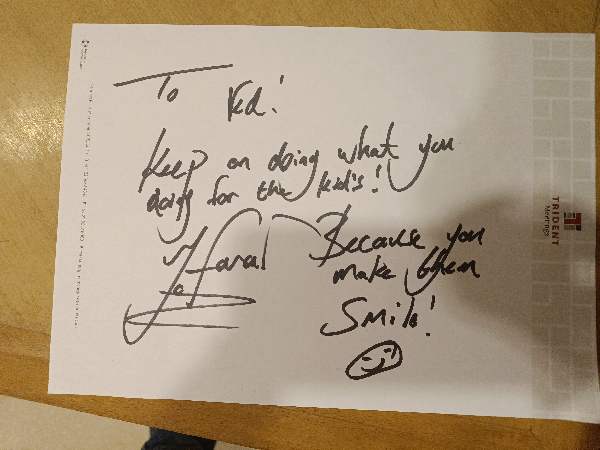 To
Ked!
Keep on doing what you
doing for the kid's!
Because you
make them
Smile!
TRIDENT
Meetings